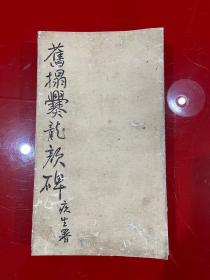 舊搨爨龍顏碑
疚生署